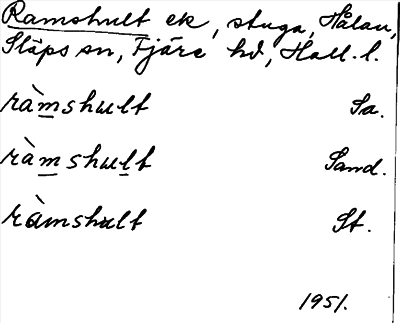 Ramshult ek, stuga, Hålan,
Släps sn, Fjäre hd, Hall. l.
ràmshult Sa.
ràmshult Sand.
ràmshult St.
1951.